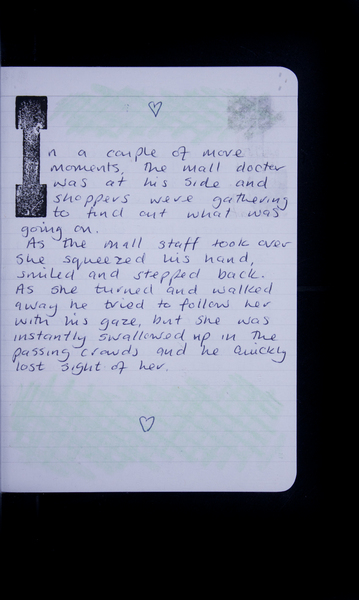 In a couple of more
moments, the mall doctor
was at his side and
shoppers were gathering
to find out what was
going on.
As the mall staff took over
she squeezed his hand,
smiled and stepped back.
As she turned and walked
away he tried to follow her
with his gaze, but she was
instantly swallowed up in the
passing crowds and he quickly
lost sight of her.